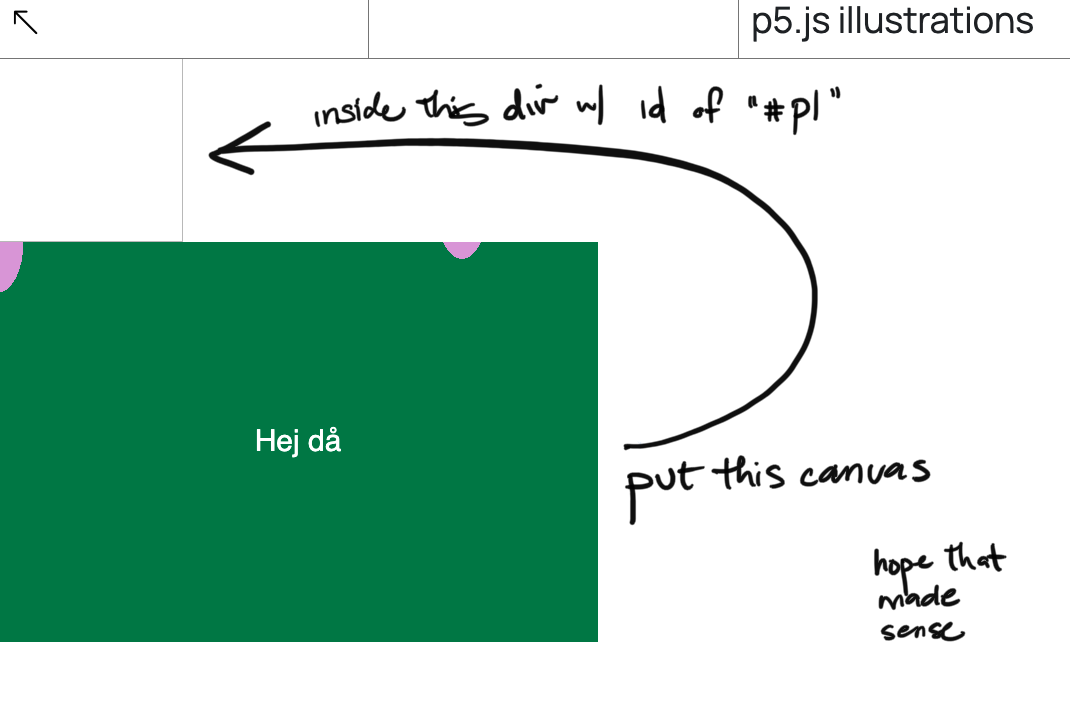 p5.js illustrations
inside this div w/ id of "#p1"
Hej då
put this canvas
hope that
made
sense